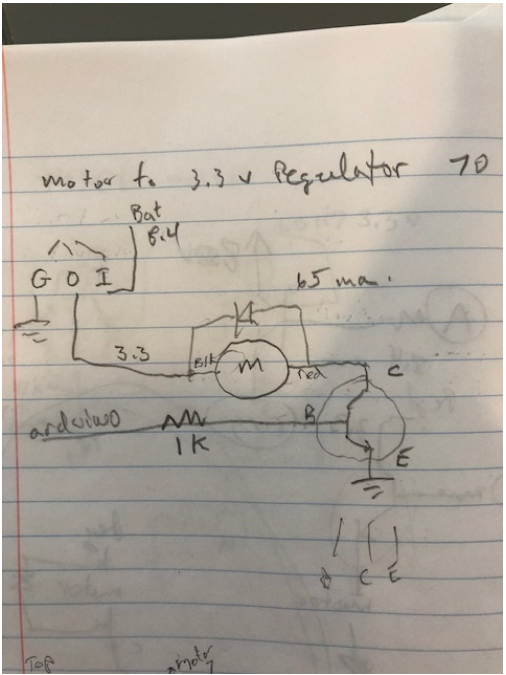 motor to 3.3 v Regulator 70
Bat
8.4
G O I
65 ma.
3.3
Blk
M
red
C
arduino
B
1K
E
C E
TOP
motor